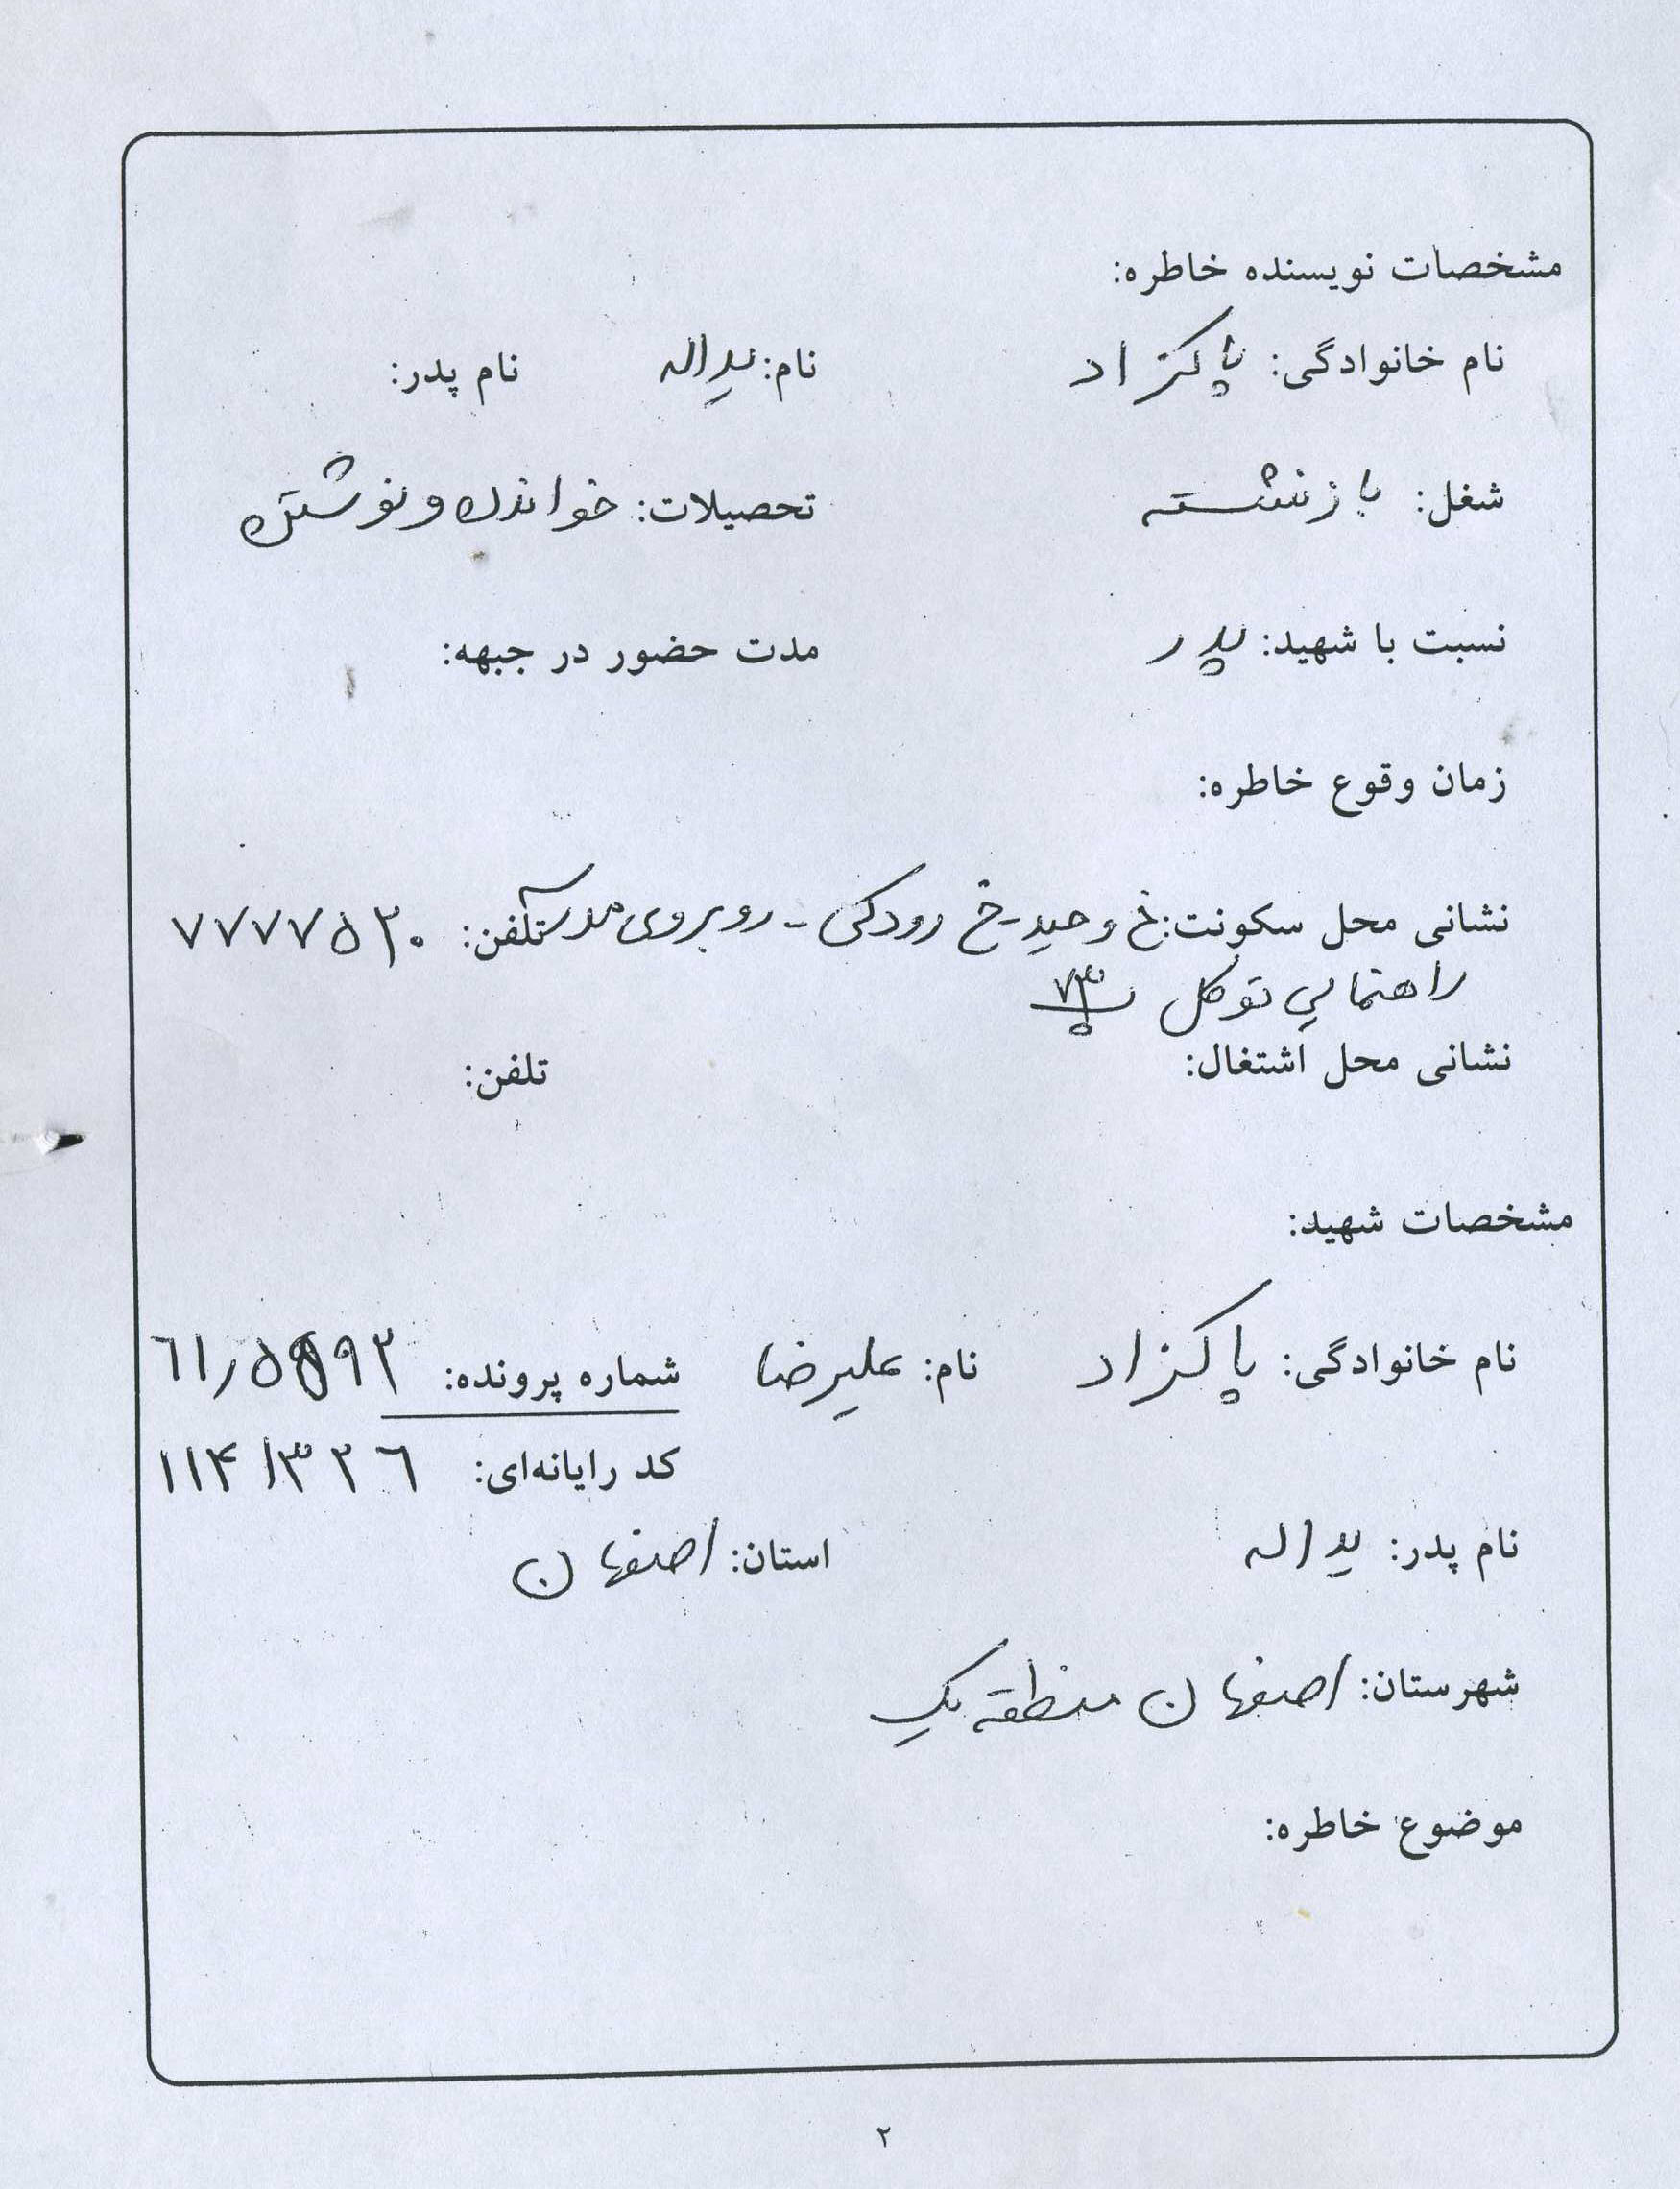 مشخصات نویسنده خاطره:
نام خانوادگی: پاکزاد نام: یداله نام پدر:
شغل: بازنشسته تحصیلات: خواندن و نوشتن
نسبت با شهید: پدر مدت حضور در جبهه:
زمان وقوع خاطره:
نشانی محل سکونت: خ وحید - خ رودکی - روبروی مدرسه تلفن: ۷۷۷۷۵۲۰
راهنمایی توکل پ ۷۳
نشانی محل اشتغال: تلفن:
مشخصات شهید:
نام خانوادگی: پاکزاد نام: علیرضا شماره پرونده:
کد رایانه‌ای: ۱۱۴۱۳۲۶
نام پدر: یداله استان: اصفهان
شهرستان: اصفهان منطقه یک
موضوع خاطره:
۲